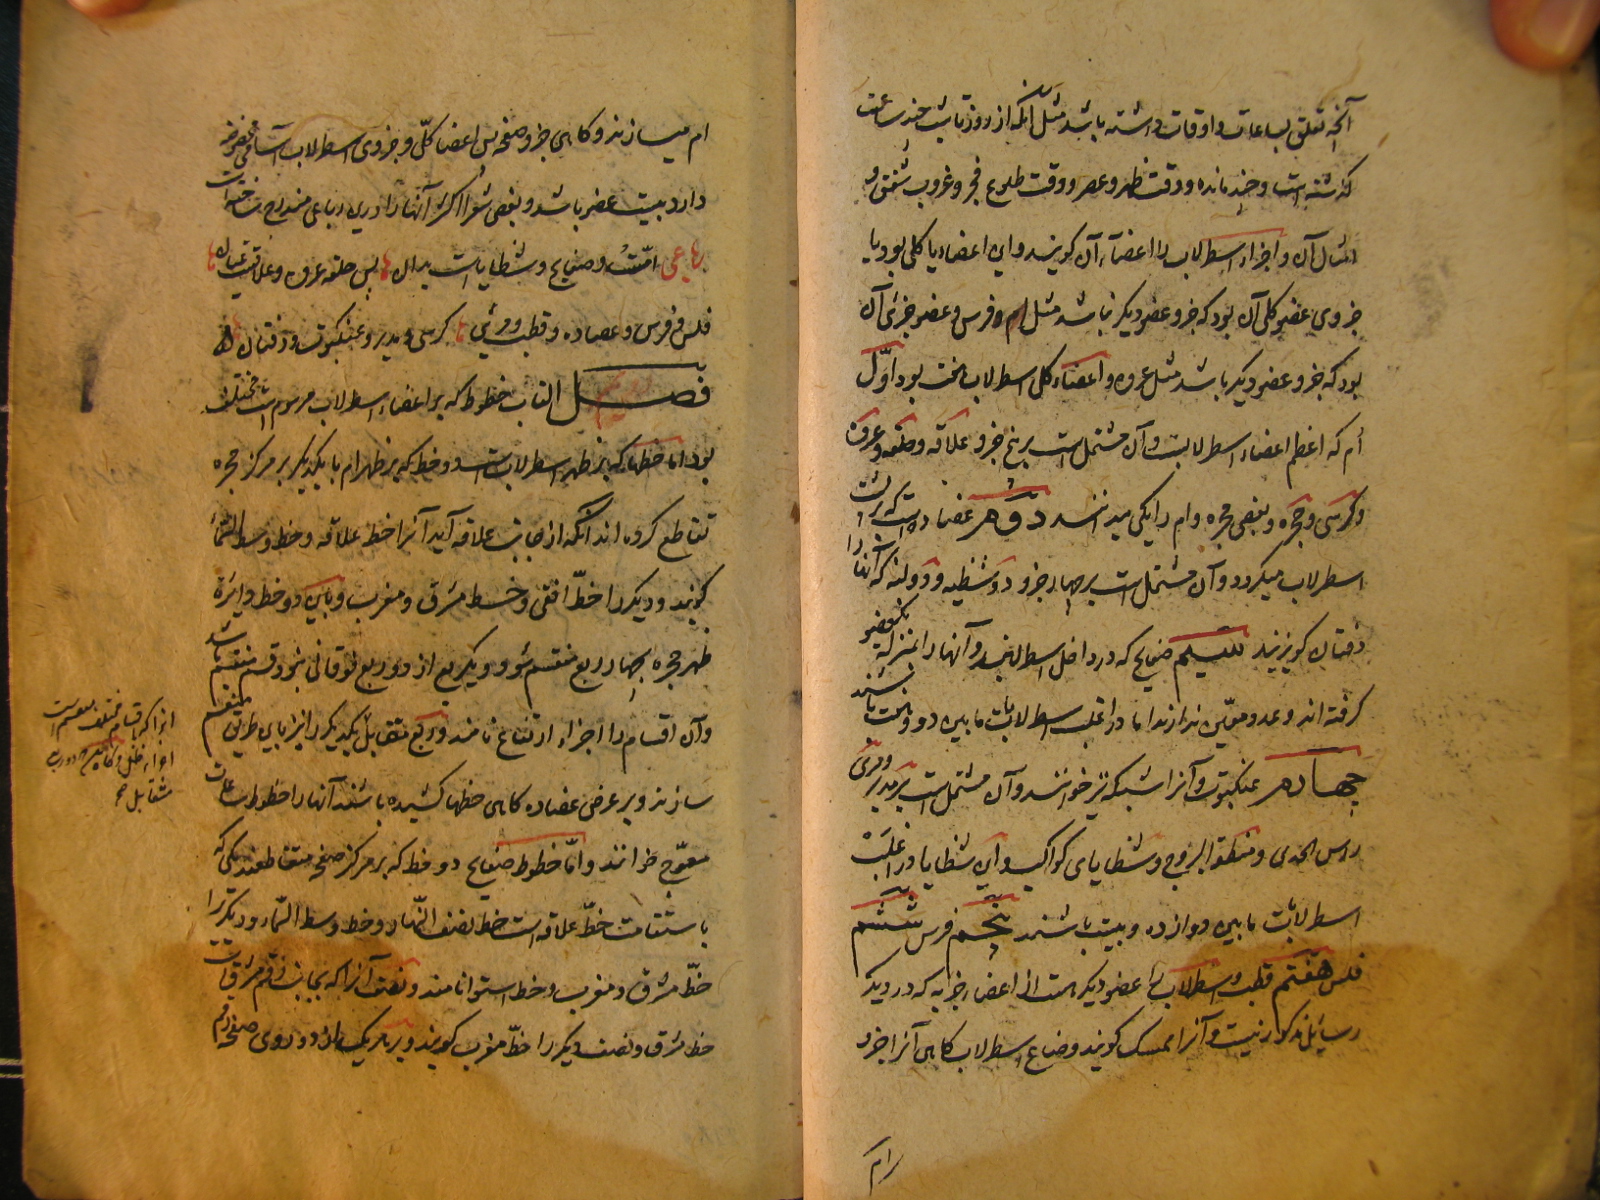 آنچه تعلق بساعات و اوقات داشته باشد مثل آنکه از روز تا شب چند ساعت
گذشته است و چند مانده و وقت ظهر و عصر و وقت طلوع فجر و غروب شفق و
امثال آن و اجزاء اسطرلاب را اعضاء آن گویند و این اعضاء یا کلی بود یا
جزوی عضو کلی آن بود که جزو عضو دیگر نباشد مثل ام و فرس و عضو جزئی آن
بود که جزو عضو دیگر باشد مثل عروه و اعضاء کلی اسطرلاب هشت بود اوّل
اُم که اعظم اعضاء اسطرلابست و آن مشتمل است بر پنج جزو علاقه و حلقه و عروه
و کرسی و حجره و بعضی حجره و ام را یکی میدانند دوم عضاده است که بر پشت
اسطرلاب میگردد و آن مشتمل است بر چهار جزو دو شظیه و دو لبنه که آنها را
دفتان گویند سیم صفایح که در داخل اسطرلابند و آنها را بمنزله یکعضو
گرفته اند و عدد معیّن ندارند اما در اغلب اسطرلابات مابین دو و هشت باشند
چهارم عنکبوت و آنرا شبکه نیز خوانند و آن مشتمل است بر مدیر و مری
راس الجدی و منطقة البروج و شظایای کواکب و این شظایا در اغلب
اسطرلابات مابین دوازده و بیست باشند پنجم فرس ششم
فلس هفتم قطب و اسطرلاب را عضو دیگر هست از اعضاء جزویه که در دیگر
رسایل مذکور نیست و آنرا ممسک گویند و صفایح اسطرلاب گاهی آنرا جزو
ام
ام میسازند و گاهی جزو صفحه پس اعضاء کلّی و جزوی اسطرلاب که اسامی مخصوصه
دارد بیست عضو باشد و بعضی شعرا اکثر آنها را درین رباعی مندرج ساخته
رباعی امّست و صفایح و شظایاست بدان پس حلقه و عروه و علاقت
فلس و فرس و عضاده و قطب و مری کرسی و مدیر و عنکبوت و دفتان
فصل القاب خطوط که بر اعضاء اسطرلاب مرسوم است مختلف
بود اما خطها که بر ظهر اسطرلابست دو خط که بر ظهر ام با یکدیگر بر مرکز حجره
تقاطع کرده اند آنکه از جانب علاقه آید آنرا خط علاقه و خط وسط السّماء
گویند و دیگر را خطّ افقی و خط مشرق و مغرب و باین دو خط دایرهٔ
ظهر حجره بچهار ربع منقسم شود و یکربع از دو ربع فوقانی بنود قسم منقسم باشد
و آن اقسام را اجزاء ارتفاع نامند و ربع مقابل یکدیگر را نیز باین طریق منقسم
سازند و بر عرض عضاده گاهی خطها کشیده باشند آنها را خطوط ساعات
معوّج خوانند و امّا خطوط صفایح دو خط که بر مرکز صفحه متقاطعند یکی که
باستقامت خطّ علاقه است خط نصف النّهار و خط وسط السّماء و دیگر را
خطّ مشرق و مغرب و خط استوا نامند و نصف آنرا که بجانب رقم مشرقست
خط مشرق و نصف دیگر را خطّ مغرب گویند و بر هر یک از دو روی صفحه